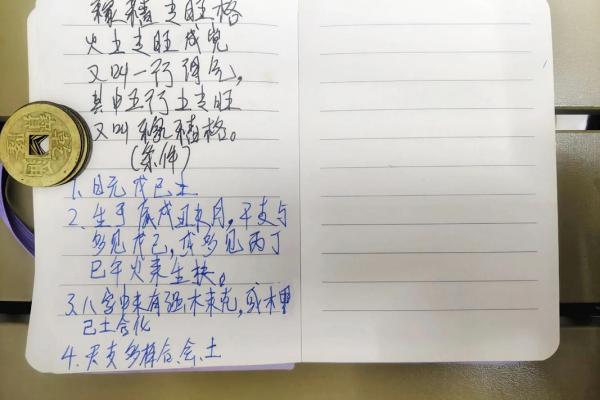 稼穑专旺格
火土专旺成党
又叫一行得气,
其中五行土专旺
又叫稼穑格。
(条件)
1. 日元戊己土
2. 生于辰戌丑未月,干支与
多见戊己,或多见丙丁
巳午火来生扶。
3. 八字中未有强木来克,或木甲
己土合化
4. 多合会土